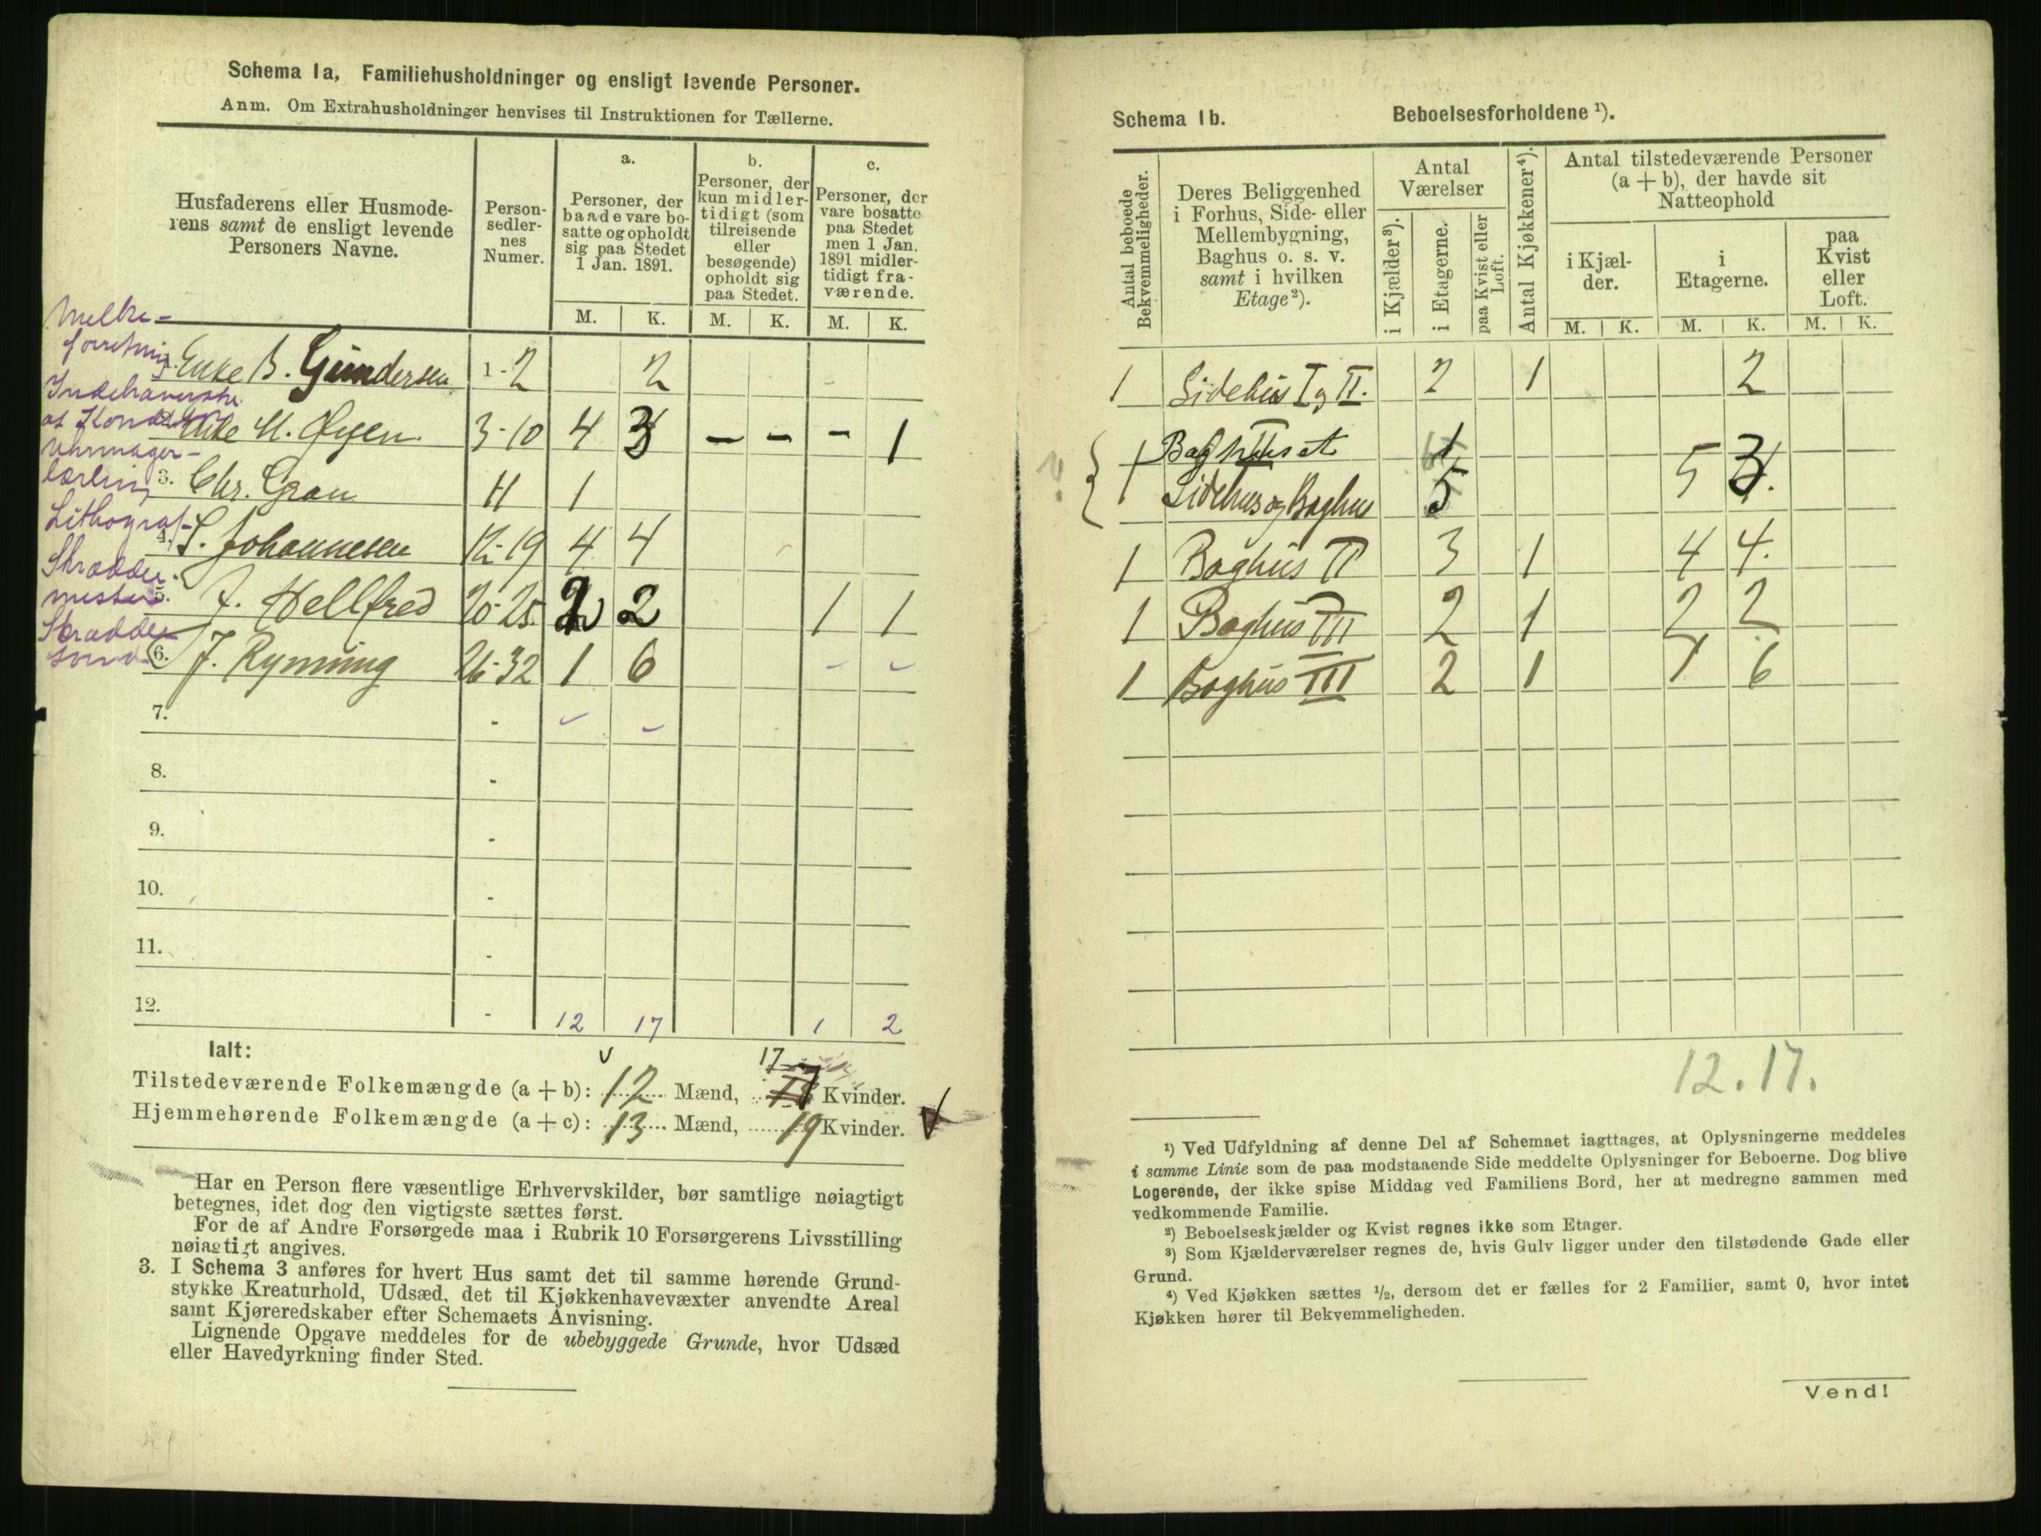 Schema 1a, Familiehusholdninger og ensligt levende Personer.
Anm. Om Extrahusholdninger henvises til Instruktionen for Tællerne.
Husfaderens eller Husmode-
rens samt de ensligt levende
Personers Navne.
Person-
sedler-
nes
Numer.
a.
Personer, der
baade vare bo-
satte og opholdt
sig paa Stedet
1 Jan. 1891.
b.
Personer, der
kun midler-
tidigt (som
tilreisende
eller
besøgende)
opholdt sig
paa Stedet.
c.
Personer, der
vare bosatte
paa Stedet
men 1 Jan.
1891 midler-
tidigt fra-
værende.
M. K. M. K. M. K.
Melke-
forretning
Enke B. Gundersen 1-2 2
Indehaverske
af
Enke M. Øyen. 3-10 4 3 - - - 1
Uhrmager-
lærling
3. Chr. Grau 11 1
Lithograf
4. S. Johannesen 12-19 4 4
Skrædder-
mester
5. J. Hellfred 20-25. 2 2 1 1
Skrædder
svend
6. J. Rynning 26-32 1 6
7. -
8. -
9. -
10. -
11. -
12. - 12 17 1 2
Ialt:
17
Tilstedeværende Folkemængde (a + b): 12 Mænd, Kvinder.
Hjemmehørende Folkemængde (a + c): 13 Mænd, 19 Kvinder.
Har en Person flere væsentlige Erhvervskilder, bør samtlige nøiagtigt
betegnes, idet dog den vigtigste sættes først.
For de af Andre Forsørgede maa i Rubrik 10 Forsørgerens Livsstilling
nøiagtigt angives.
3. I Schema 3 anføres for hvert Hus samt det til samme hørende Grund-
stykke Kreaturhold, Udsæd, det til Kjøkkenhavevæxter anvendte Areal
samt Kjøreredskaber efter Schemaets Anvisning.
Lignende Opgave meddeles for de ubebyggede Grunde, hvor Udsæd
eller Havedyrkning finder Sted.
Schema 1b. Beboelsesforholdene ¹).
Antal beboede
Bekvemmeligheder.
Deres Beliggenhed
i Forhus, Side- eller
Mellembygning,
Baghus o. s. v.
samt i hvilken
Etage ²).
Antal
Værelser
i Kjælder ³).
i Etagerne.
paa Kvist eller
Loft.
Antal Kjøkkener ⁴).
Antal tilstedeværende Personer
(a + b), der havde sit
Natteophold
i Kjæl-
der.
i
Etagerne.
paa
Kvist
eller
Loft.
M. K. M. K. M. K.
1 Sidehus I og II. 2 1 2
Baghuset 1
1 Sidehus og Baghus 5 5 3
1 Baghus II 3 1 4 4.
1 Baghus III 2 1 2 2
1 Baghus III 2 1 1 6
12. 17.
¹) Ved Udfyldning af denne Del af Schemaet iagttages, at Oplysningerne meddeles
i samme Linie som de paa modstaaende Side meddelte Oplysninger for Beboerne. Dog blive
Logerende, der ikke spise Middag ved Familiens Bord, her at medregne sammen med
vedkommende Familie.
²) Beboelseskjælder og Kvist regnes ikke som Etager.
³) Som Kjælderværelser regnes de, hvis Gulv ligger under den tilstødende Gade eller
Grund.
⁴) Ved Kjøkken sættes ½, dersom det er fælles for 2 Familier, samt 0, hvor intet
Kjøkken hører til Bekvemmeligheden.
Vend!